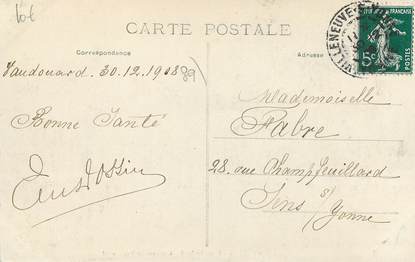 CARTE POSTALE
Correspondance
Adresse
Vaudouard. 30.12.1908
89
Bonne Santé
Mademoiselle
Fabre
28. rue Champfeuillard
Sens s/
Yonne
VILLENEUVE
FRANÇAISE
5c
POSTES